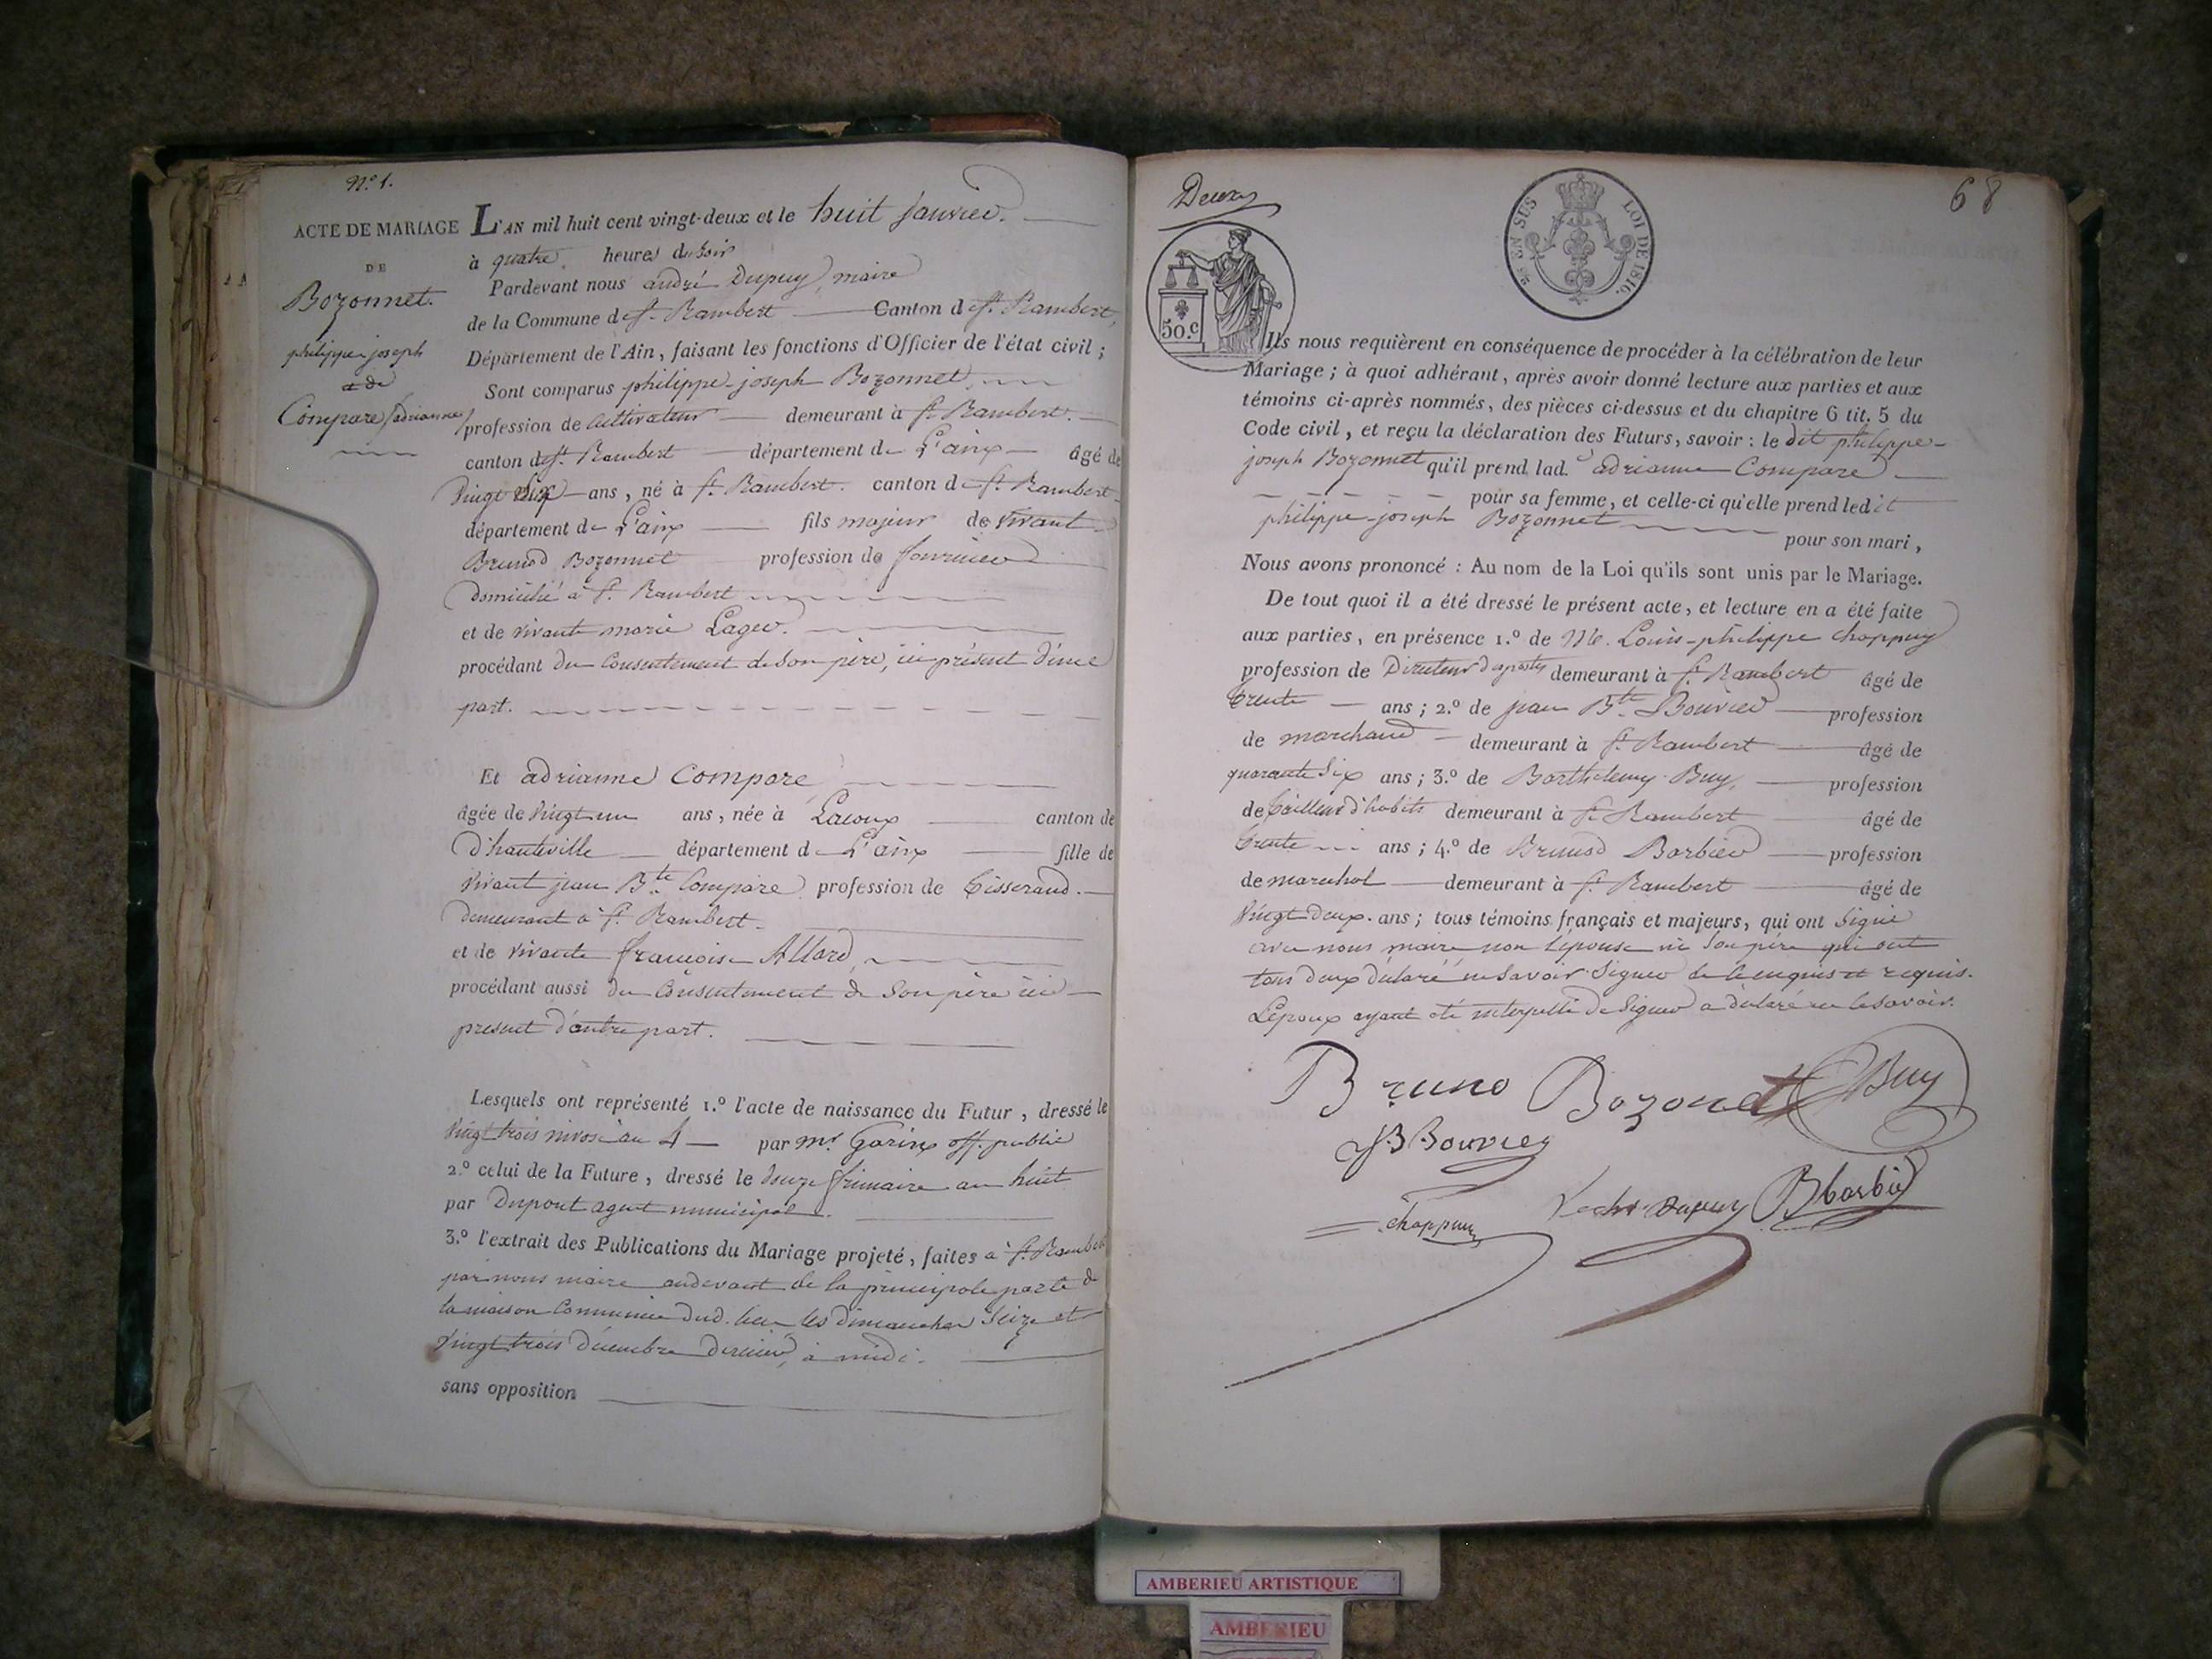 N.° 1.
ACTE DE MARIAGE
DE
Bozonnet.
philippe joseph
et de
Compare adrianne
L'AN mil huit cent vingt-deux et le huit janvier.
à quatre heures du soir
Pardevant nous andré Dupuy, maire
de la Commune de St. Rambert Canton de St. Rambert,
Département de l'Ain, faisant les fonctions d'Officier de l'état civil;
Sont comparus philippe joseph Bozonnet,
profession de cultivateur demeurant à St. Rambert.
canton de St. Rambert département de L'ain âgé de
vingt six ans, né à St. Rambert. canton de St. Rambert
département de L'ain fils majeur de vivant
Bruno Bozonnet profession de
domicilié à St. Rambert
et de vivante marie Lager.
procédant du Consentement de son père, ici présent d'une
part.
Et adrianne Compare
âgée de vingt un ans, née à Lacoux canton de
d'hauteville département de L'ain fille de
vivant jean Bte. Compare profession de tisserand.
demeurant à St. Rambert.
et de vivante françoise Allard,
procédant aussi du Consentement de son père ici
present d'autre part.
Lesquels ont représenté 1.° l'acte de naissance du Futur, dressé le
vingt trois nivose an 4 par mr. Garin off. public
2.° celui de la Future, dressé le douze frimaire an huit
par Dupont agent municipal.
3.° l'extrait des Publications du Mariage projeté, faites à St. Rambert
par nous maire audevant de la principale porte de
la maison Commune dud. lieu les dimanches seize et
vingt trois décembre dernier, à midi.
sans opposition
Deux
50.c
EN SUS
LOI DE 1816.
68
Ils nous requièrent en conséquence de procéder à la célébration de leur
Mariage; à quoi adhérant, après avoir donné lecture aux parties et aux
témoins ci-après nommés, des pièces ci-dessus et du chapitre 6 tit. 5 du
Code civil, et reçu la déclaration des Futurs, savoir: le dit philippe-
joseph Bozonnet qu'il prend lad. adrianne Compare
pour sa femme, et celle-ci qu'elle prend ledit
philippe-joseph Bozonnet pour son mari,
Nous avons prononcé: Au nom de la Loi qu'ils sont unis par le Mariage.
De tout quoi il a été dressé le présent acte, et lecture en a été faite
aux parties, en présence 1.° de Louis-philippe chappuy
profession de Directeur des postes demeurant à St. Rambert âgé de
trente ans; 2.° de jean Bte. Bouvier profession
de marchand demeurant à St. Rambert âgé de
quarante six ans; 3.° de Barthelemy Buy, profession
de tailleur d'habits demeurant à St. Rambert âgé de
trente ans; 4.° de Bruno Barbier profession
de marechal demeurant à St. Rambert âgé de
vingt deux. ans; tous témoins français et majeurs, qui ont signé
avec nous maire non l'épouse ni son père qui ont
tous deux déclaré ne savoir signer de ce enquis et requis.
L'époux ayant été interpellé de signer a déclaré ne le savoir.
Bruno Bozonet Buy
JB Bouvier
chappuy Dupuy B barbier
AMBERIEU ARTISTIQUE
AMBERIEU